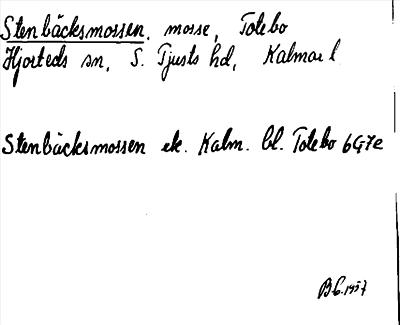 Stenbäcksmossen, mosse, Tolebo
Hjorteds sn, S. Tjusts hd, Kalmar l
Stenbäcksmossen ek. Kalm. bl. Tolebo 6G7e
1957